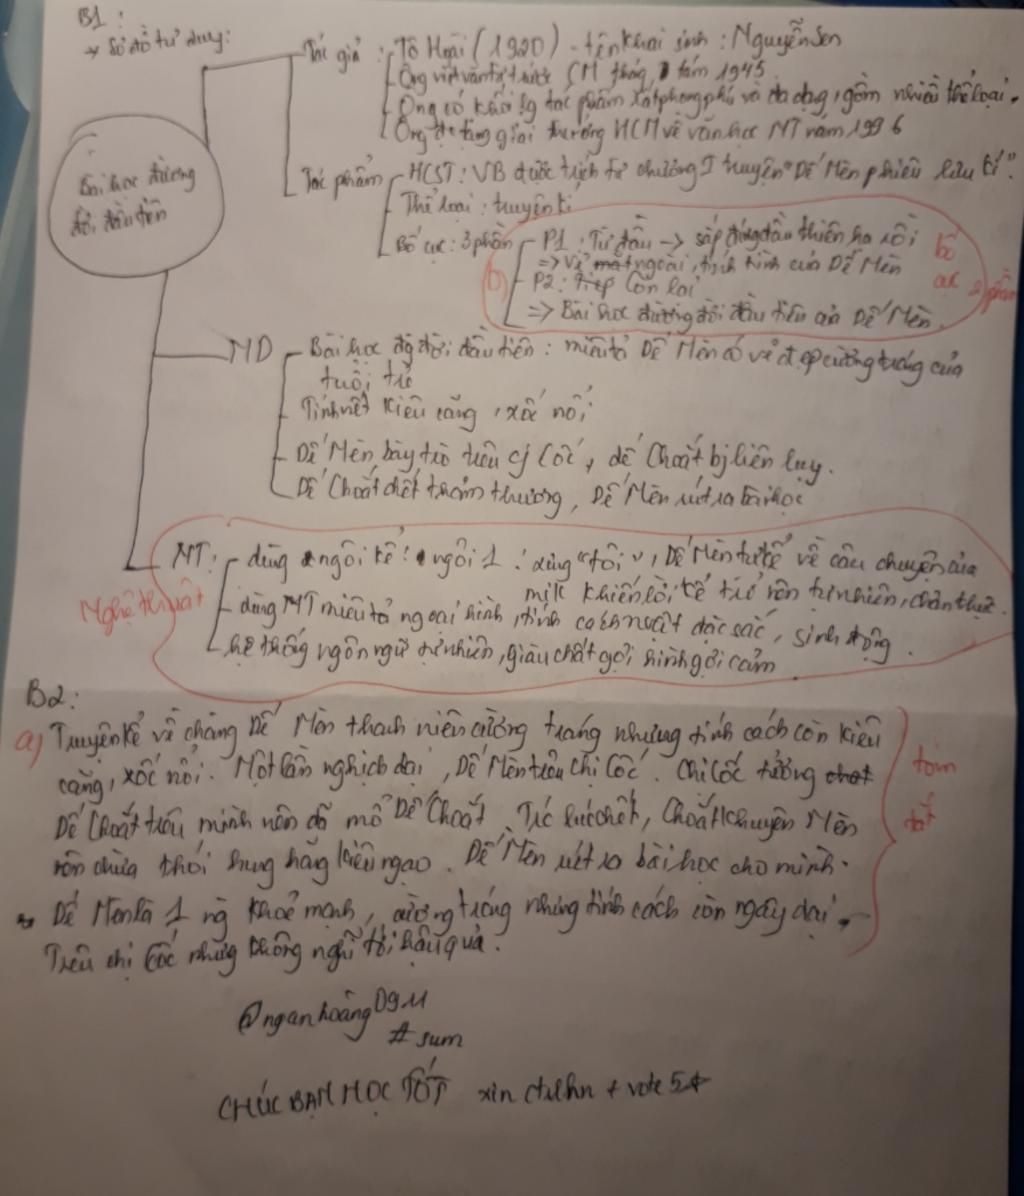 B1:
→ Sơ đồ tư duy:
Bài học đường
đời đầu tiên
Tác giả: Tô Hoài (1920) - tên khai sinh: Nguyễn Sen
Ông viết văn từ trước CM tháng tám 1945
Ông có khối lg tác phẩm rất phong phú và đa dạng, gồm nhiều thể loại.
Ông đc tặng giải thưởng HCM về văn học NT năm 1996
Tác phẩm - HCST: VB được trích từ chương I truyện "Dế Mèn phiêu lưu kí".
Thể loại: truyện kí
Bố cục: 3 phần - P1: Từ đầu → sắp đứng đầu thiên hạ rồi
=> Vẻ ngoài, tính tình của Dế Mèn
P2: Tiếp Còn lại
=> Bài học đường đời đầu tiên của Dế Mèn.
b)
bố
cục 2 phần
ND - Bài học đg đời đầu tiên: miêu tả Dế Mèn có vẻ đẹp cường tráng của
tuổi trẻ
- Tính nết kiêu căng, xốc nổi
- Dế Mèn bày trò trêu cj Cốc, dế Choắt bị liên lụy.
- Dế Choắt chết thảm thương, Dế Mèn rút ra bài học
NT: - dùng ngôi kể: ngôi 1: xưng "tôi", Dế Mèn tự kể về câu chuyện của
mik khiến lời kể trở nên tự nhiên, chân thực.
- dùng NT miêu tả ngoại hình, tính cách nvật đặc sắc, sinh động.
- hệ thống ngôn ngữ tự nhiên, giàu chất gợi hình gợi cảm.
Nghệ thuật
B2:
a) Truyện kể về chàng Dế Mèn thanh niên cường tráng nhưng tính cách còn kiêu
căng, xốc nổi. Một lần nghịch dại, Dế Mèn trêu chị Cốc. Chị Cốc tưởng
Dế Choắt trêu mình nên đã mổ Dế Choắt. Trc lúc chết, Choắt khuyên Mèn
nên chừa thói hung hăng kiêu ngạo. Dế Mèn rút ra bài học cho mình.
Dế Mèn là 1 ng khoẻ mạnh, cường tráng nhưng tính cách còn ngây dại.
Trêu chị Cốc nhưng không nghĩ tới hậu quả.
tóm
tắt
@nganhoàng09.11
# sum
CHÚC BẠN HỌC TỐT xin ctlhn + vote 5*